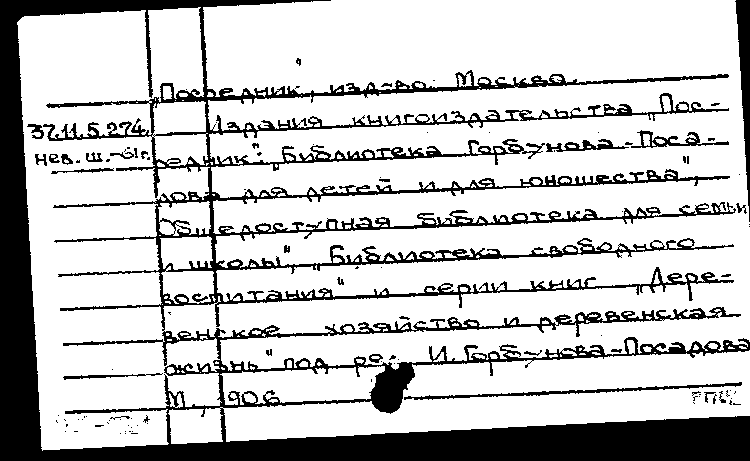 „Посредник", изд-во. Москва.
37.11.5.274. Издания книгоиздательства „Пос-
нев.ш.-61г. редник": „Библиотека Горбунова-Поса-
дова для детей и для юношества",
Общедоступная библиотека для семьи
и школы", „Библиотека свободного
воспитания" и серии книг „Дере-
венское хозяйство и деревенская
жизнь" под ред. И. Горбунова-Посадова
М., 1906